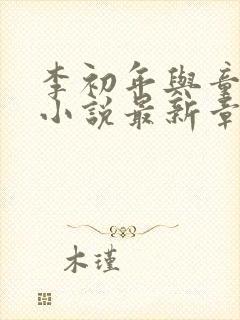 李初年與童
小說最新章
木瑾